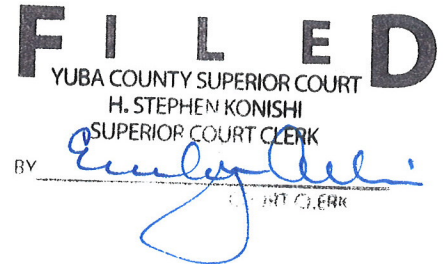 FILED
YUBA COUNTY SUPERIOR COURT
H. STEPHEN KONISHI
SUPERIOR COURT CLERK
BY
CLERK